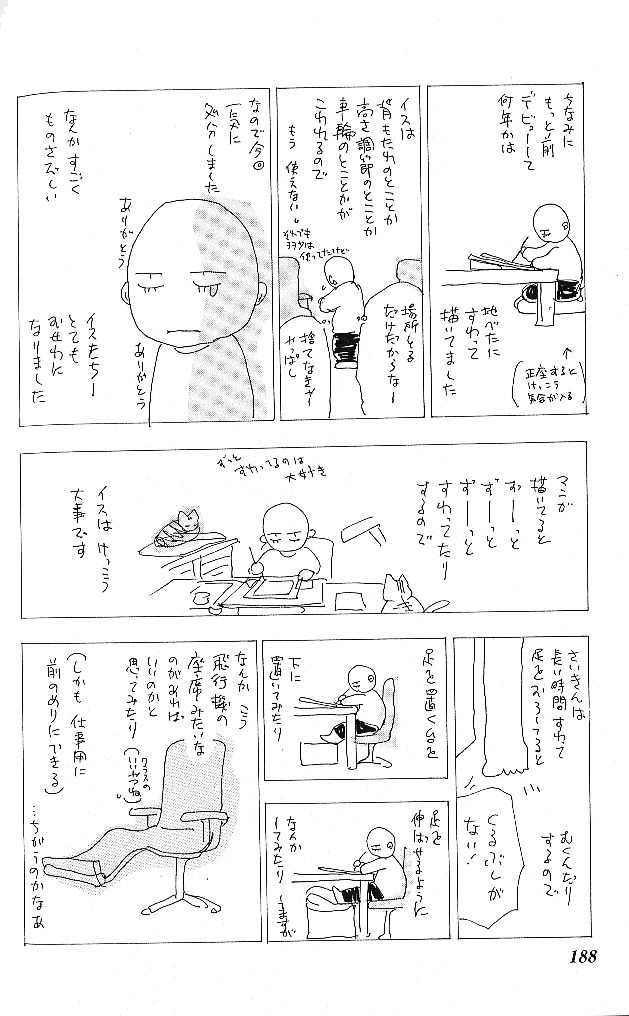 ちなみに
もっと前
デビューして
何年かは
地べたに
すわって
描いてました
↑
(正座すると
けっこう
気合が入る)
イスは
背もたれのとことか
高さ調節のとことか
車輪のとことかが
こわれるので
もう 使えない。
それでも
ヨヨヨは
使ってたけど
場所とる
だけだからなー
捨てなきゃー
やっぱし
なので今回
一気に
処分しました
なんか すごく
ものさびしい
ありがとう
ありがとう
イスたちー
とても
おせわに
なりました
マンガ
描いてると
ずーっと
ずーっと
ずーっと
すわってたり
するので
ずっと
すわってるのは
大好き
イスは けっこう
大事です
さいきんは
長い時間 すわて
足をおろしてると
むくんだり
するので
くるぶしが
ない!
足を置く台を
下に
置いてみたり
足を
伸ばせるように
なんか
してみたり しますが
なんか こう
飛行機の
座席みたいな
のがあれば
いいのかと
思ってみたり
(クラスの
いいやつね)
(しかも 仕事用に
前のめりにできる)
…ちがうのかなあ
188